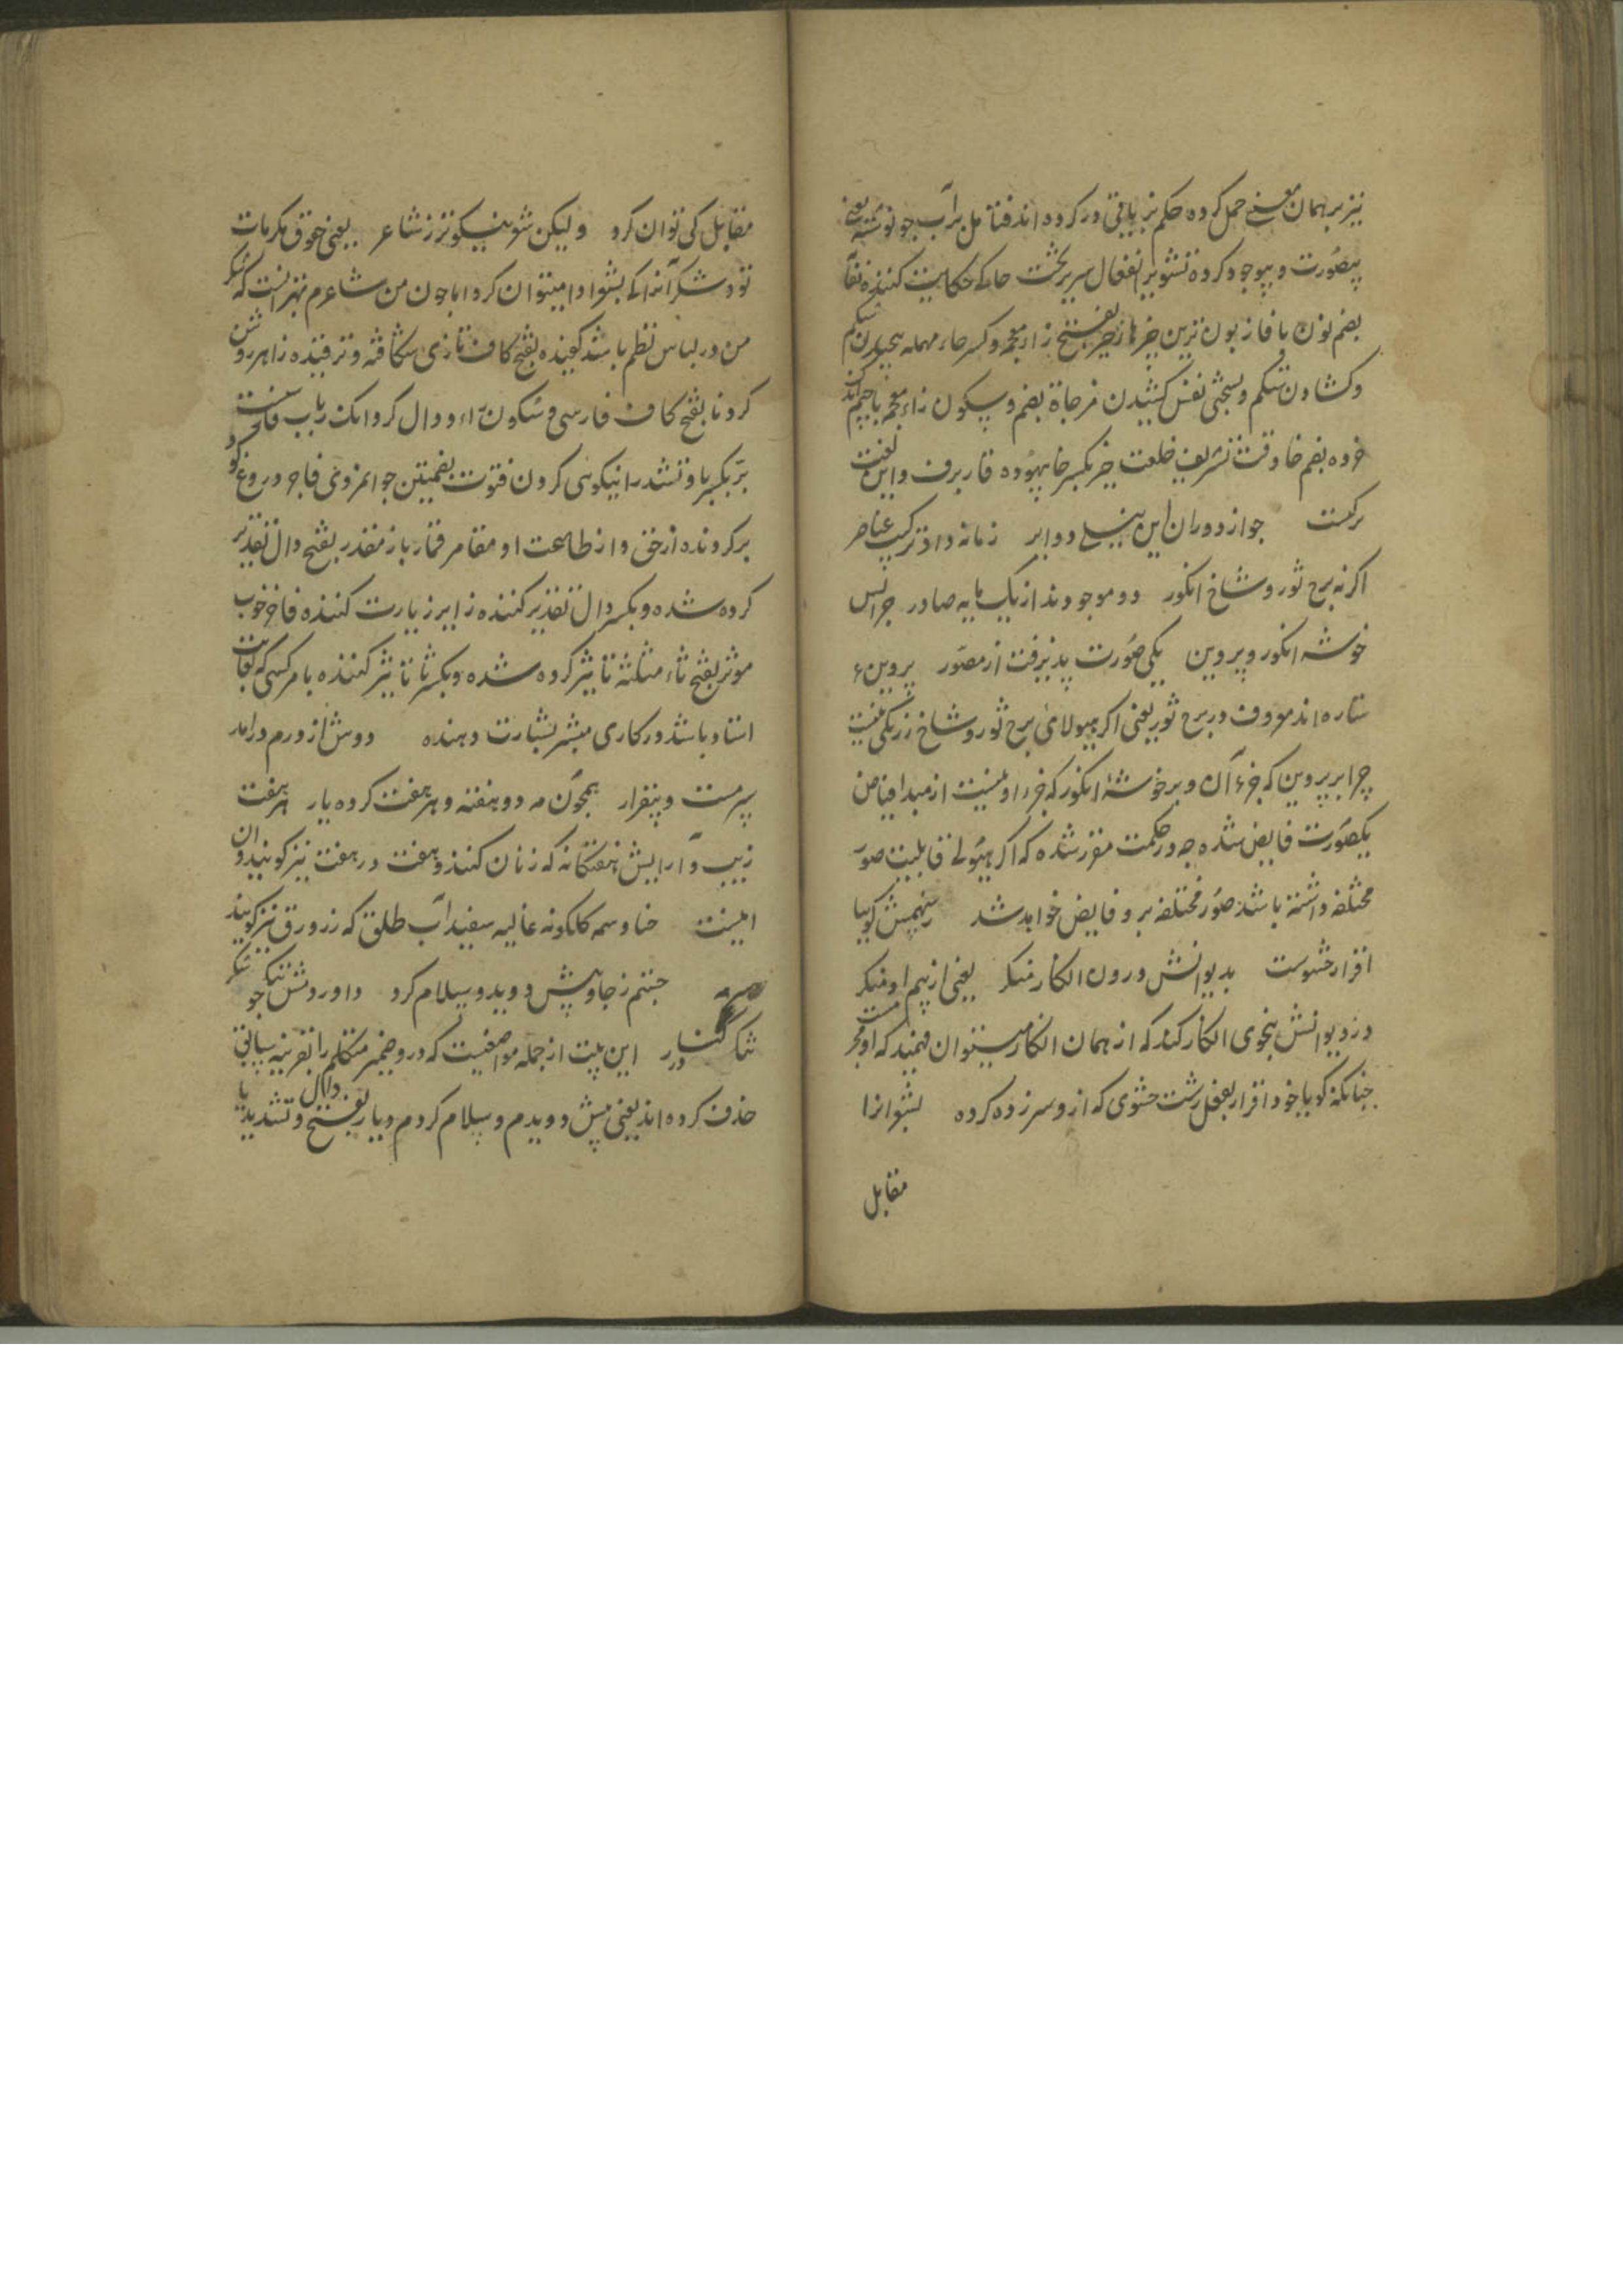 نیز بر همان معنی حمل کرده حکم بر باقی در کرده اند فتامل بر آب جو نوشته یعنی
بیصورت و بیوجود کرده تشویر انفعال سریر تخت حاکی حکایت کننده
بضم نون با فا زبون ترین چیزها زحیر بفتح زاء معجمه و کسر حاء مهمله پیچیدن شکم
و کشادن شکم و بسختی نفس کشیدن مزجاة بضم و سکون زاء معجمه با جیم اندک
خرده بضم خا وقت تشریف خلعت خیر بکسر خا بیهوده قار برف و این لغت
ترکیست جو از دوران این نیلی دوایر زمانه داد ترکیب عناصر
اگر نه برج ثور و شاخ انگور دو موجودند از یک مایه صادر چرا پس
خوشه انگور و پروین یکی صورت پذیرفت از مصور پروین ۶
ستاره اند معروف در برج ثور یعنی اگر هیولای برج ثور و شاخ رز یکی نیست
چرا بر پروین که جزء آن و بر خوشه انگور که جزء اوینست از مبدا فیاض
یکصورت فایض شده چه در حکمت مقرر شده که اگر هیولی قابلیت صور
مختلفه داشته باشد صور مختلفه بر و فایض خواهد شد ز بیمش گوییا
اقرار حشوست بدیوانش درون انکار منکر یعنی از بیم او منکر
در دیوانش بنحوی انکار کند که از همان انکار میتوان فهمید که او مجرمست
چنانکه گویا خود اقرار بفعل زشت حشوی که از و سر زده کرده بشعر انرا
مقابل
مقابل کی توان کرد ولیکن شعر نیکوتر ز شاعر یعنی حقوق مکرمات
تو و شکر آنرا کی بشعر ادا میتوان کرد اما چون من شاعرم بهتر انست که شکر
من در لباس نظم باشد کفیده بفتح کاف تازی شکافته و ترقیده زاهر روشن
گردنا بفتح کاف فارسی و سکون راء و دال گردانک رباب
بر بکسر با و تشدید را نیکویی کردن فتوت بضمتین جوانمردی فاجر دروغ گو
برگردنده از حق و از طاعت او مقامر قمارباز مقدر بفتح دال تقدیر
کرده شده و بکسر دال تقدیر کننده زایر زیارت کننده فاخر خوب
موثر بفتح ثاء مثلثه تاثیر کرده شده و بکسر ثا تاثیر کننده ماهر کسی که بغایت
استاد باشد در کاری مبشر بشارت دهنده دوش از درم درامد
سرمست و بیقرار همچون مه دو هفته و هر هفت کرده یار هر هفت
زیب و آرایش هفتگانه که زنان کنند و هفت در هفت نیز گویند و ان
اینست حنا وسمه گلگونه غالیه سفیداب طلق که زرورق نیز گویند
سرمه جستم ز جا و پیش دویدو سلام کرد و اوردمش تنگ شکر جو
شکر در کنار این بیت از جمله مواضعیست که در و ضمیر متکلم را بقرینه سابق
حذف کرده اند یعنی پیش دویدم و سلام کردم دیار بفتح دال و تشدید یا